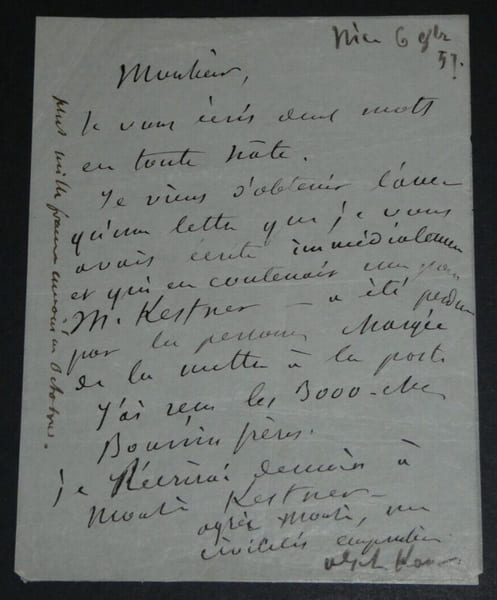 Nice 6 9bre
57.
Monsieur,
Je vous écris deux mots
en toute hâte.
Je viens d'obtenir l'aveu
qu'une lettre que je vous
avais écrite immédiatement
et qui en contenait une pour
M. Kestner - a été perdue
par la personne chargée
de la mettre à la poste
J'ai reçu les 3000 - chez
frères.
je Récrirai demain à
Kestner -
agréez
civilités empressées
plus mille francs envoi en Octobre.